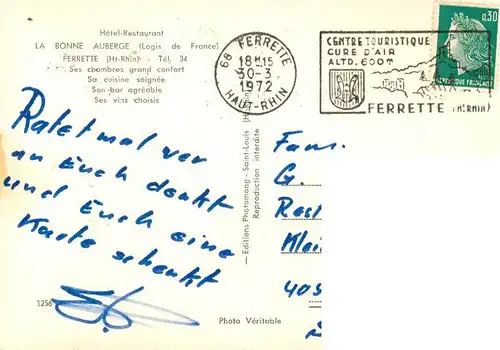 Hôtel-Restaurant
LA BONNE AUBERGE (Logis de France)
FERRETTE (Ht-Rhin) - Tél. 34
Ses chambres grand confort
Sa cuisine soignée
Son bar agréable
Ses vins choisis
68 FERRETTE
18H15
30-3
1972
HAUT-RHIN
CENTRE TOURISTIQUE
CURE D'AIR
ALTD. 600m
FERRETTE (Ht RHIN)
0,30
REPUBLIQUE FRANÇAISE
Ratet mal wer
an Euch denkt
und Euch eine
Karte schenkt
Editions Photomong - Saint-Louis
Reproduction interdite
Fam.
G.
Rest
Klei
405
1256
Photo Véritable